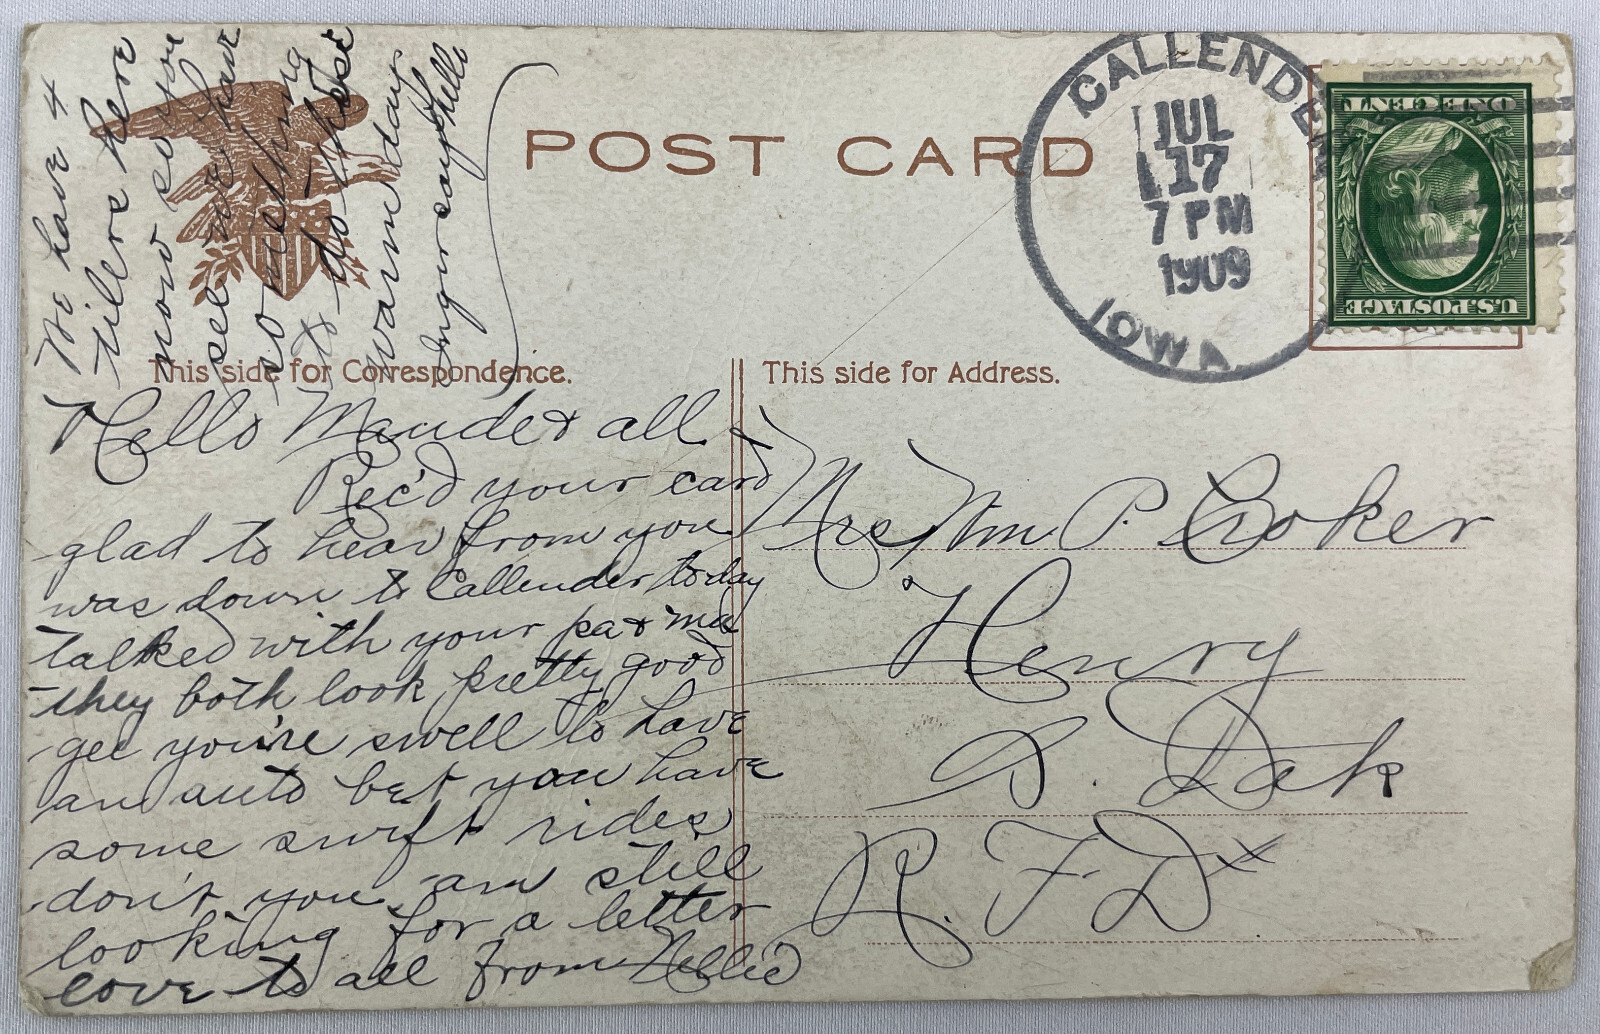 POST CARD
CALLENDER
JUL
17
7 PM
1909
IOWA
U.S. POSTAGE
ONE CENT
This side for Correspondence.
This side for Address.
Hello Maude & all
Rec'd your card
glad to hear from you
was down to Callender today
talked with your pa & ma
they both look pretty good
gee you're swell to have
an auto bet you have
some swift rides
don't you am still
looking for a letter
love to all from Nellie
We have 4
here
now so you
see we have
something
to do these
warm days
say hello
Mrs Wm P. Croker
Henry
S. Dak
R. F. D x